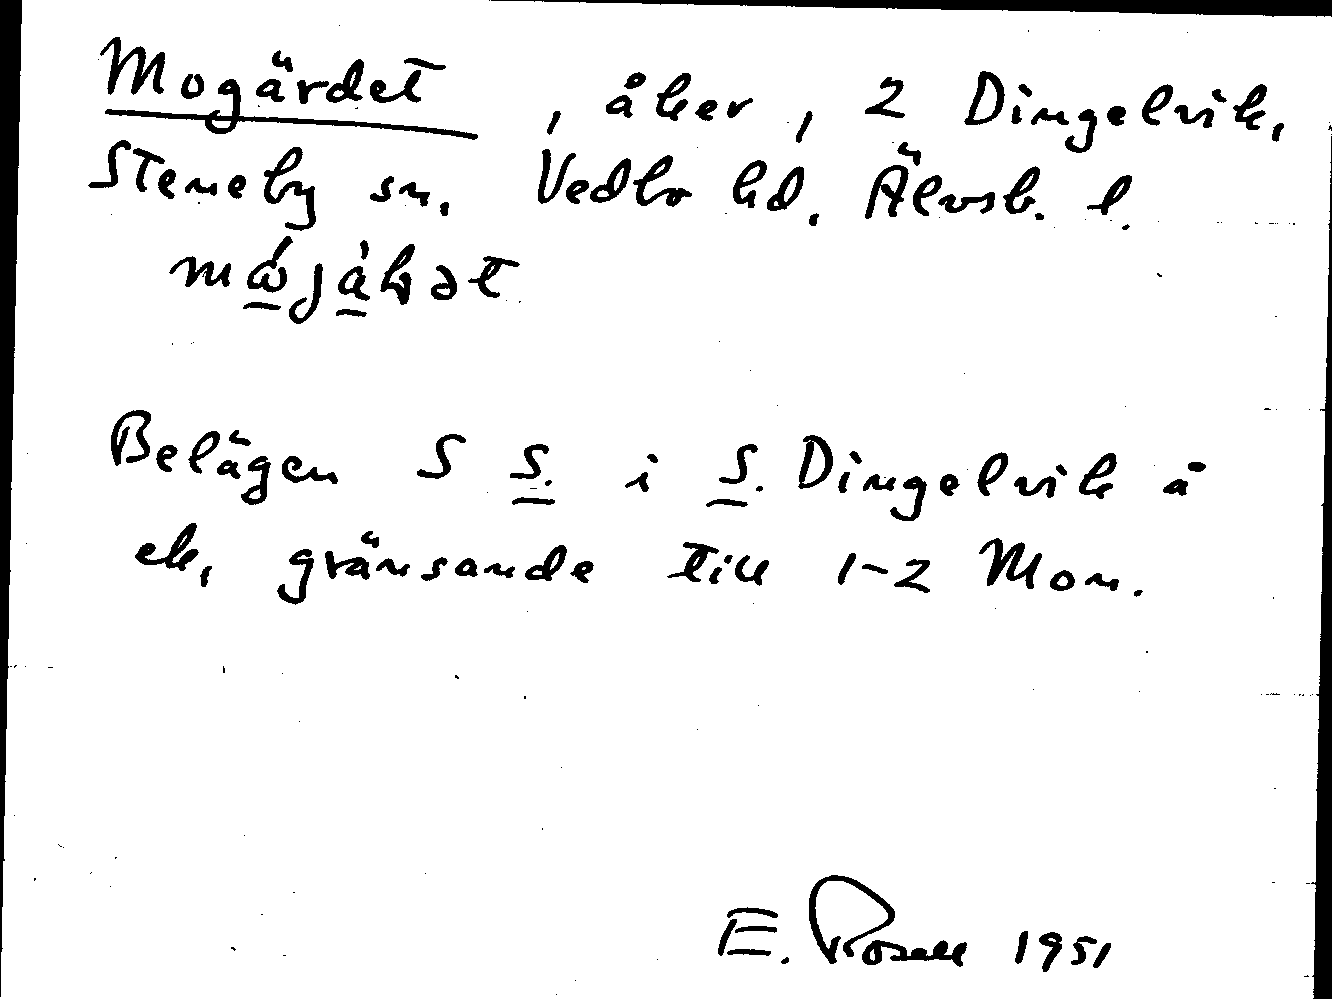 Mogärdet, åker, 2 Dingelvik,
Steneby sn. Vedbo hd. Älvsb. l.
Belägen S S. i S. Dingelvik å
ek, gränsande till 1-2 Mon.
E. Rosell 1951